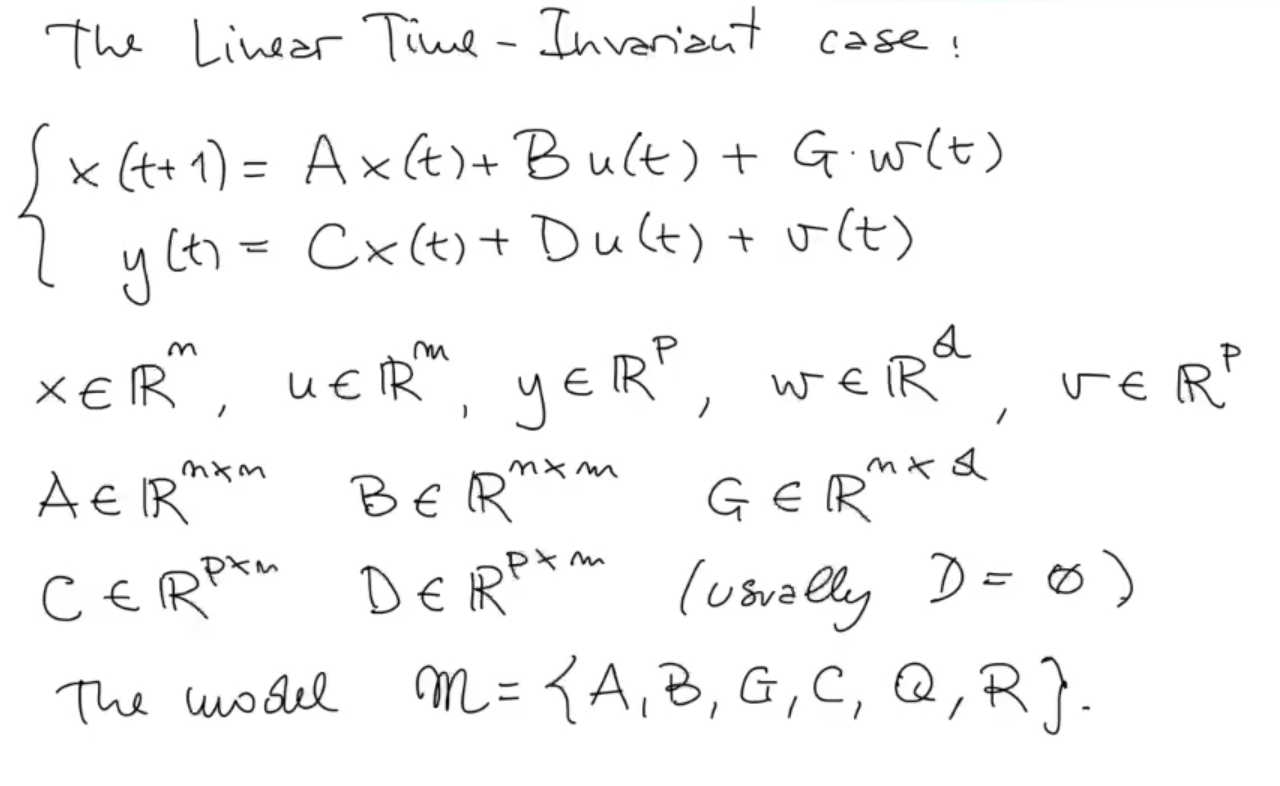 The Linear Time-Invariant case:
x(t+1) = Ax(t) + Bu(t) + G·w(t)
y(t) = Cx(t) + Du(t) + v(t)
x ∈ ℝⁿ, u ∈ ℝᵐ, y ∈ ℝᵖ, w ∈ ℝᵈ, v ∈ ℝᵖ
A ∈ ℝⁿˣⁿ B ∈ ℝⁿˣᵐ G ∈ ℝⁿˣᵈ
C ∈ ℝᵖˣⁿ D ∈ ℝᵖˣᵐ (usually D = 0)
The model M = {A, B, G, C, Q, R}.